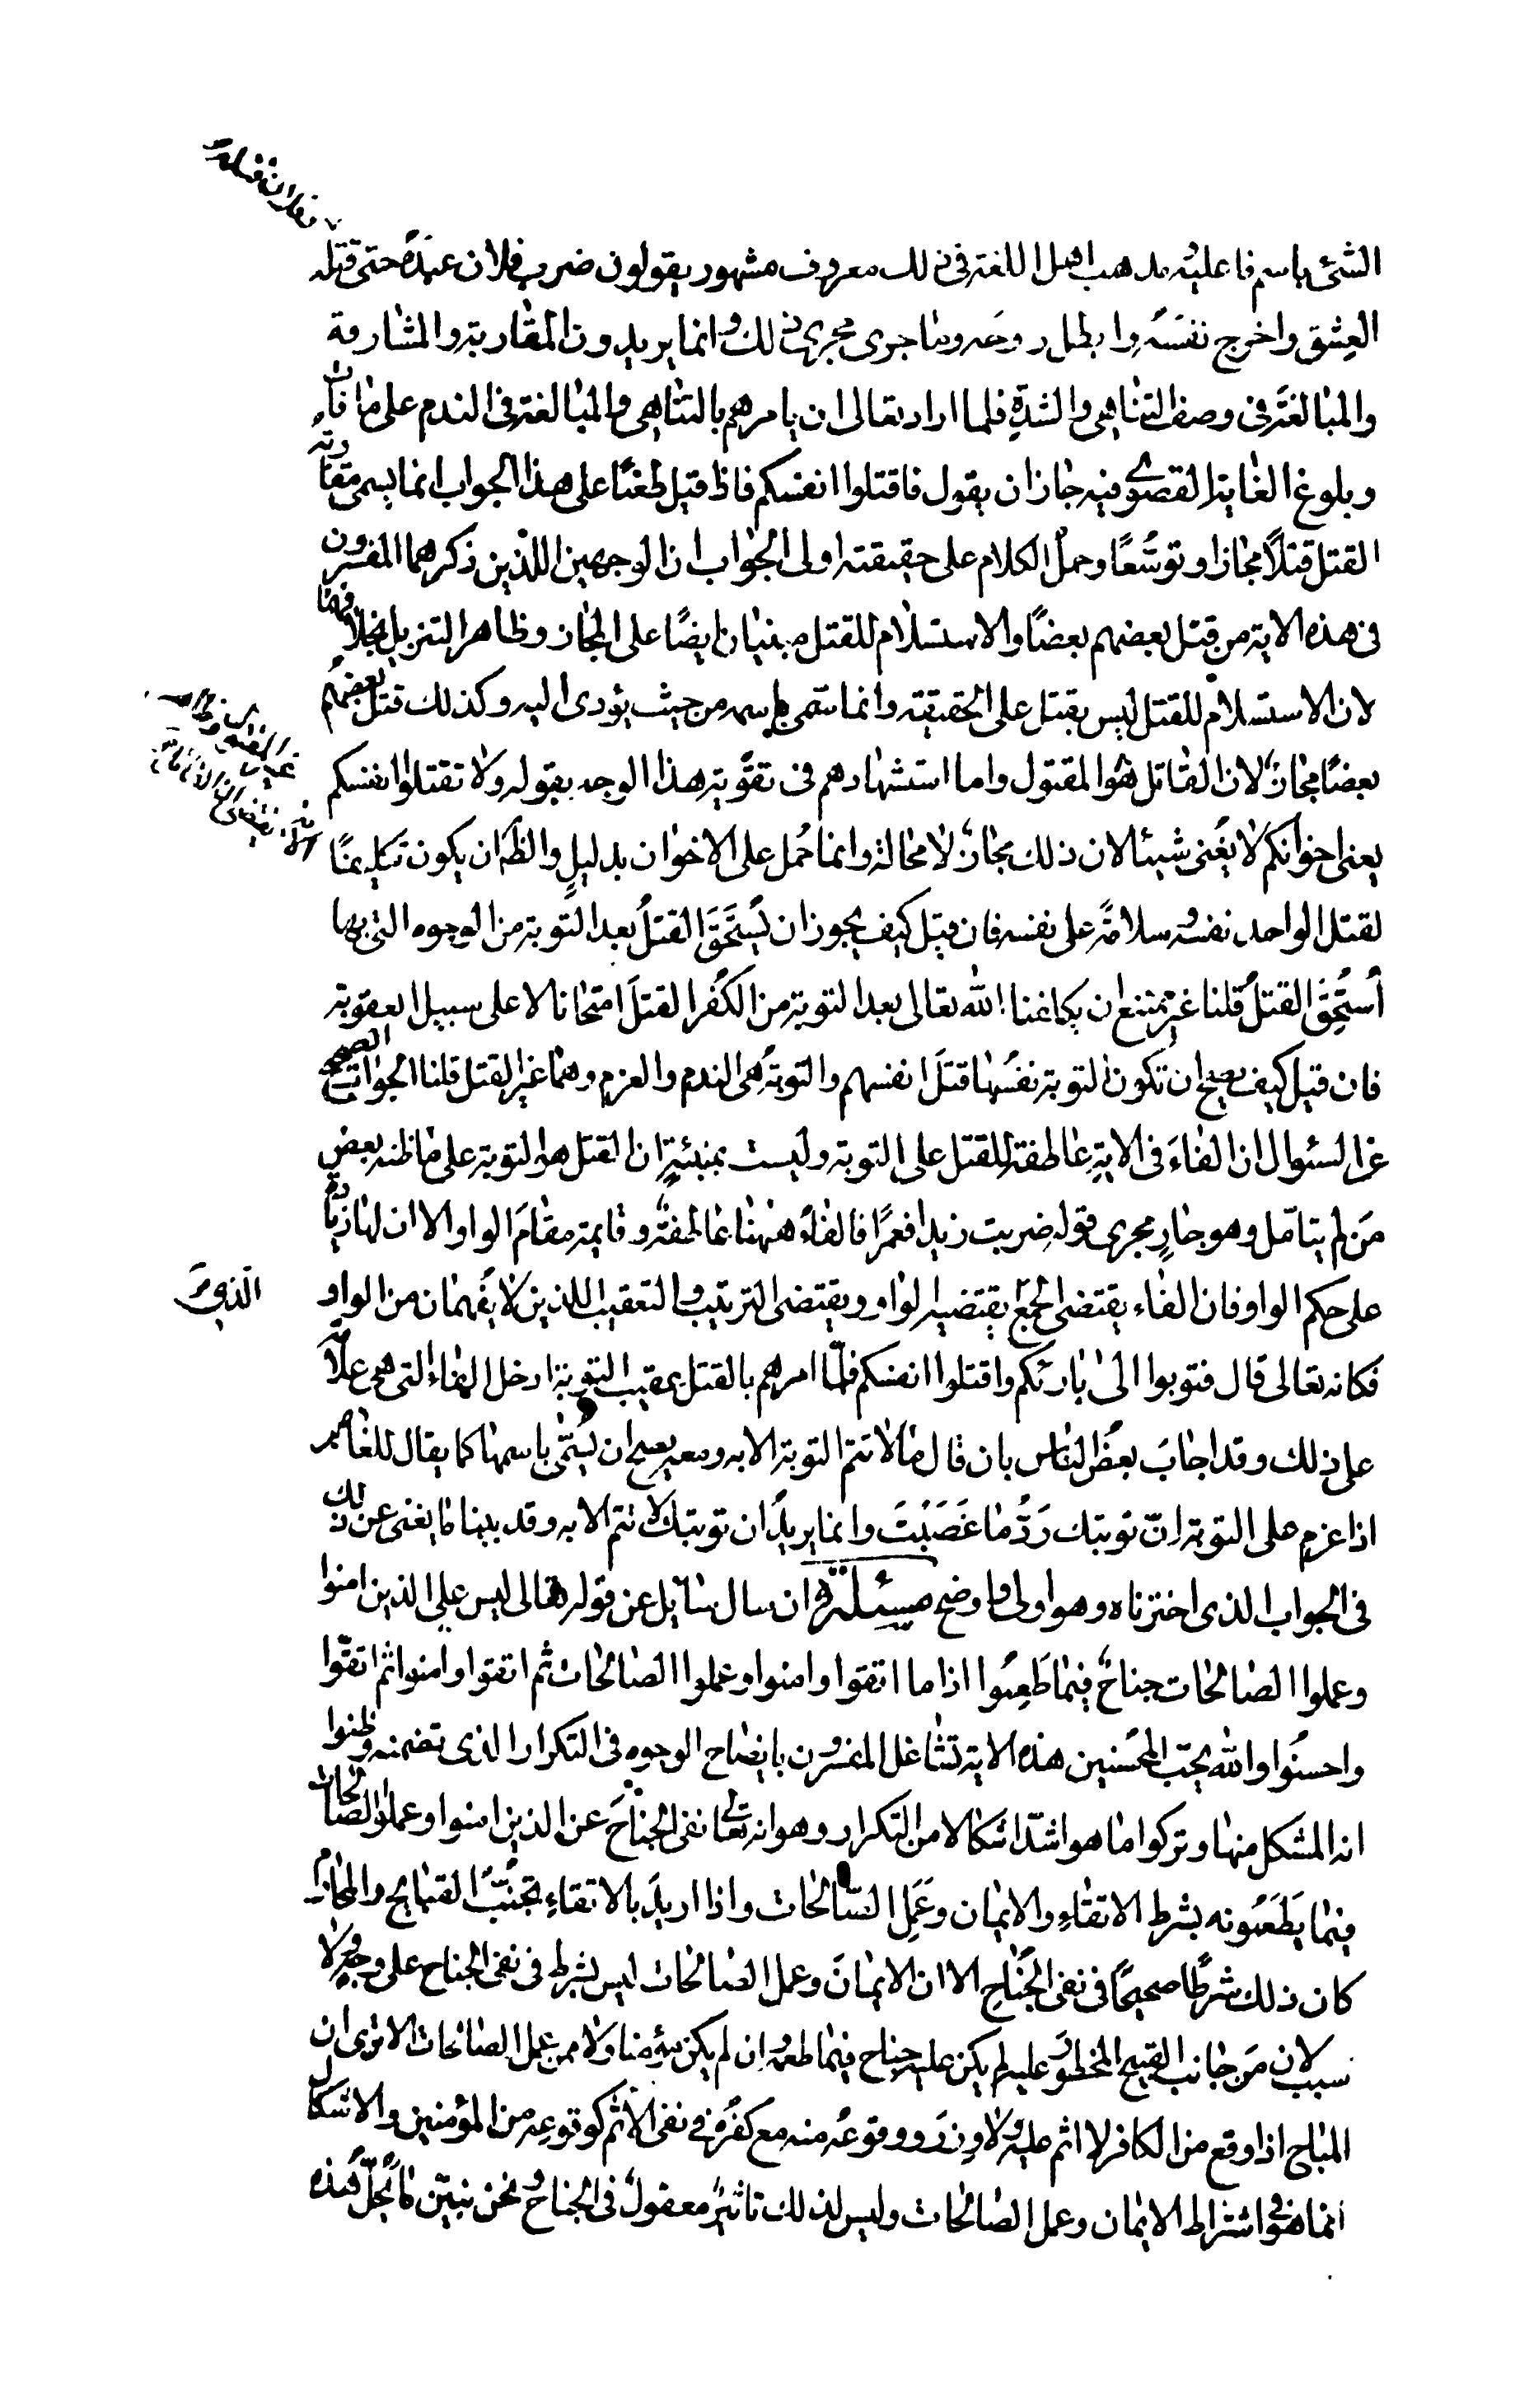 الشئ باسم فاعليه مذهب اهل اللغة فى ذلك معروف مشهور يقولون ضرب فلان عبده حتى قتله
العِشق واخرج نفسَه وابطل روحه وما جرى مجرى ذلك وانما يريدون المقاربة والمشارفة
والمبالغة فى وصف التناهى والشدة فلما اراد تعالى ان يامرهم بالتناهى والمبالغة فى الندم على ما فات
وبلوغ الغاية القصوى فيه جاز ان يقول فاقتلوا انفسكم فاذ قيل طعنًا على هذا الجواب انما يسمى مقاربة
القتل قتلًا مجازا وتوسُّعًا وحمل الكلام على حقيقته اولى الجواب ان الوجهين اللذين ذكرهما المفسرون
فى هذه الاية من قتل بعضهم بعضًا والاستسلام للقتل مبنيان ايضًا على المجاز وظاهر التنزيل بخلافهما
لان الاستسلام للقتل ليس بقتل على الحقيقة وانما سمى باسمه من حيث يؤدى اليه وكذلك قتل بعضهم
بعضًا مجازٌ لان القاتل هو المقتول واما استشهادهم فى تقوية هذا الوجه بقوله ولا تقتلوا انفسكم
يعنى اخوانكم لا يُغنى شيئا لان ذلك مجازٌ لا محالة وانما حُمل على الاخوان بدليلٍ والظّ ان يكون تكليمًا
لقتل الواحد نفسه وسلامةً على نفسه فان قيل كيف يجوز ان يُستَحَقَّ القتلُ بعد التوبة من الوجوه التى بها
اُستُحِقَّ القتلُ قلنا غير ممتنع ان يكلفنا الله تعالى بعد التوبة من الكُفر القتلَ امتحانا لا على سبيل العقوبة
فان قيل كيف يصح ان تكون التوبة نفسُها قتلَ انفسهم والتوبة هى الندم والعزم وهما غير القتل قلنا الجواب الصحيح
عن السئوال ان الفاءَ فى الاية عاطفة للقتل على التوبة وليست بمنبئةٍ ان القتل هو التوبة على ما ظنه بعض
مَن لم يتامّل وهو جارٍ مجرى قوله ضربت زيدا فعمرًا فالفاء ههنا عاطفة وقايمة مقامَ الواو الا ان لها زيادة
على حكم الواو فان الفاء يقتضى الجمع يقتضيه الواو ويقتضى الترتيب والتعقيب اللذين لا يُفهمان من الواو
الَّذى
فكانه تعالى قال فتوبوا الىٰ بارئكم واقتلوا انفسكم فلمّا امرهم بالقتل بعقيب التوبة ادخل الفاء التى هى علامة
على ذلك وقد اجابَ بعضُ الناس بان قال ما لا تتم التوبة الا به ومعه يصح ان يُسمّى باسمها كما يقال للغاصب
اذا عزم على التوبة انّ توبتك رَدُّ ما غَصَبْتَ وانما يريد ان توبتك لا تتم الا به وقد بينا ما يغنى عن ذلك
فى الجواب الذى اخترناه وهو اولى واوضح مسئلة ان سال سايل عن قوله تعالى ليس على الذين امنوا
وعملوا الصالحات جناحٌ فيما طَعِمُوا اذا ما اتقوا وامنوا وعملوا الصالحات ثم اتقوا وامنوا ثم اتقوا
واحسنُوا والله يحبّ المحسنين هذه الاية تشاغل المفسرون بايضاح الوجوه فى التكرار الذى تضمنه وظنوا
انه المشكل منها وتركوا ما هو اشدّ اشكالا من التكرار وهو انه تعالى نفى الجناحَ عن الذين امنوا وعملوا الصالحات
فيما يَطْعَمُونه بشرط الاتقاءِ والايمان وعَمَلِ الصالحات واذا اريدَ بالاتقاءِ تجنُّبُ القبايح والمحارم
كان ذلك شرطًا صحيحًا فى نفى الجُناحِ الا ان الايمانَ وعمل الصالحات ليس بشرط فى نفى الجناح على وجهٍ ولا
سبب لان مَن جانب القبيح المحظورَ عليه لم يكن عليه جناح فيما طعمه وان لم يكن مؤمنا ولا ممن عمل الصالحات الا ترى ان
المباح اذا وقع من الكافر لا اثم عليه ولا وِزرَ ووقوعُه منه مع كفره فى نفى الاثم كوقوعِه من المؤمنين والاشكال
انما هو فى اشتراط الايمان وعمل الصالحات وليس لذلك تاثيرٌ معقولٌ فى الجناح ونحن نبيّن ما يُحلّ هذه